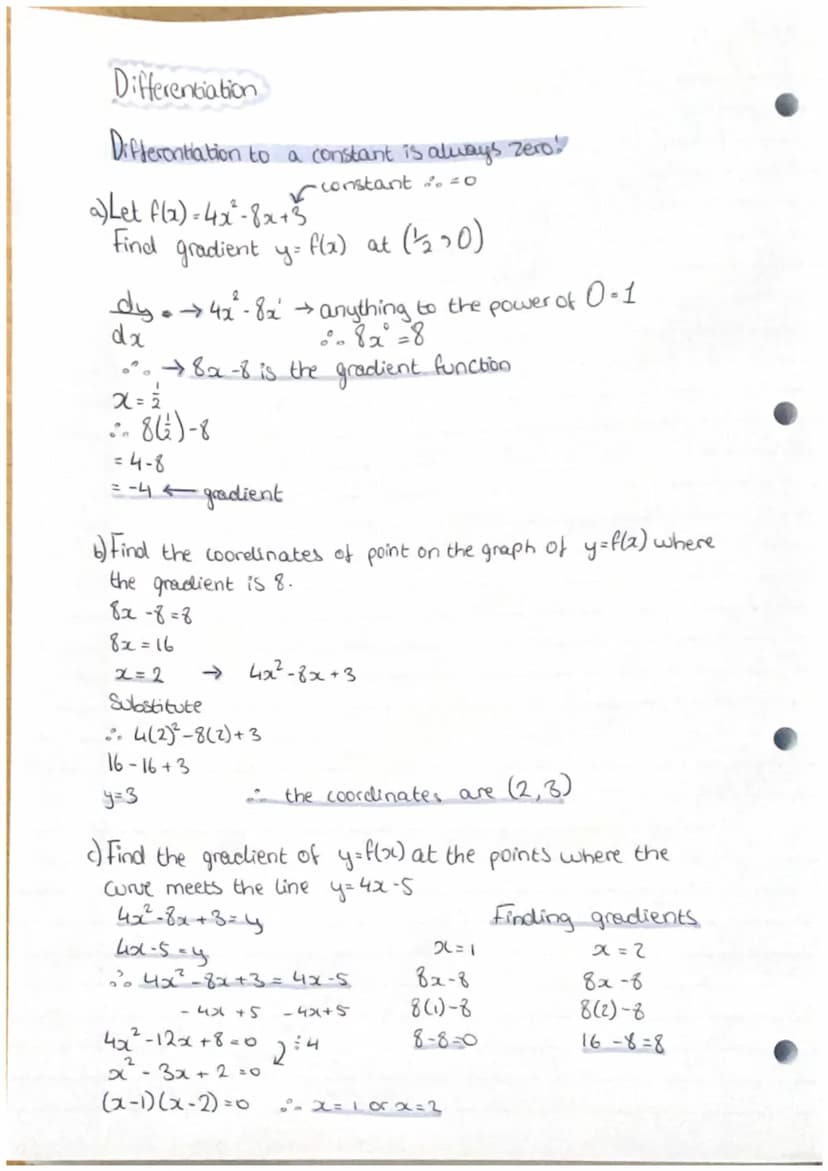 Differentiation
Differentiation to a constant is always zero!
constant ∴ = 0
a) Let f(x) = 4x² - 8x + 3
Find gradient y = f(x) at (½, 0)
dy/dx → 4x² - 8x¹ → anything to the power of 0 = 1
∴ 8x⁰ = 8
∴ → 8x - 8 is the gradient function
x = ½
∴ 8(½) - 8
= 4 - 8
= -4 ← gradient
b) Find the coordinates of point on the graph of y = f(x) where
the gradient is 8.
8x - 8 = 8
8x = 16
x = 2 → 4x² - 8x + 3
Substitute
∴ 4(2)² - 8(2) + 3
16 - 16 + 3
y = 3 ∴ the coordinates are (2, 3)
c) Find the gradient of y = f(x) at the points where the
curve meets the line y = 4x - 5
4x² - 8x + 3 = y
4x - 5 = y
∴ 4x² - 8x + 3 = 4x - 5
- 4x + 5 - 4x + 5
4x² - 12x + 8 = 0 ÷ 4
x² - 3x + 2 = 0
(x - 1)(x - 2) = 0 ∴ x = 1 or x = 2
Finding gradients
x = 1 x = 2
8x - 8 8x - 8
8(1) - 8 8(2) - 8
8 - 8 = 0 16 - 8 = 8